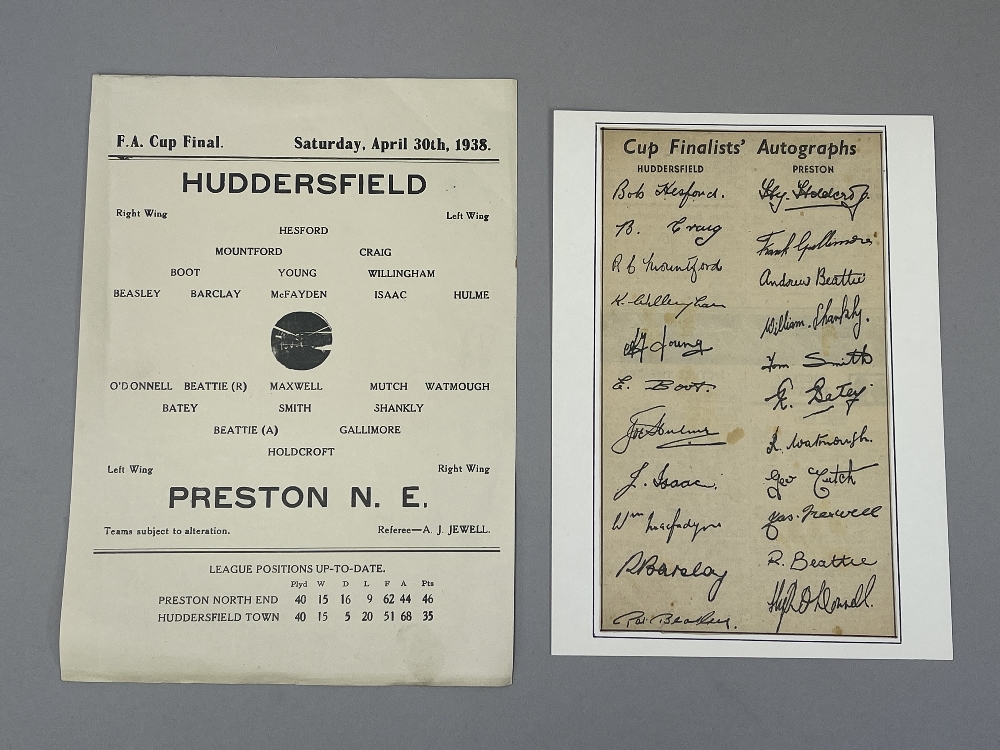 F.A. Cup Final. Saturday, April 30th, 1938.
HUDDERSFIELD
Right Wing Left Wing
HESFORD
MOUNTFORD CRAIG
BOOT YOUNG WILLINGHAM
BEASLEY BARCLAY McFAYDEN ISAAC HULME
O'DONNELL BEATTIE (R) MAXWELL MUTCH WATMOUGH
BATEY SMITH SHANKLY
BEATTIE (A) GALLIMORE
HOLDCROFT
Left Wing Right Wing
PRESTON N. E.
Teams subject to alteration. Referee—A. J. JEWELL.
LEAGUE POSITIONS UP-TO-DATE.
Plyd W D L F A Pts
PRESTON NORTH END 40 15 16 9 62 44 46
HUDDERSFIELD TOWN 40 15 5 20 51 68 35
Cup Finalists' Autographs
HUDDERSFIELD
Bob Hesford.
B. Craig
R C Mountford
K. Willingham
A Young
E. Boot.
Joe Hulme
J. Isaac.
Wm Macfadyne
R Barclay
Pat Beasley.
PRESTON
Hy. Holdcroft.
Frank Gallimore
Andrew Beattie
William. Shankly.
Tom Smith
R. Batey
R. Watmough.
Geo Mutch
Jas. Maxwell
R. Beattie
Hugh O'Donnell.